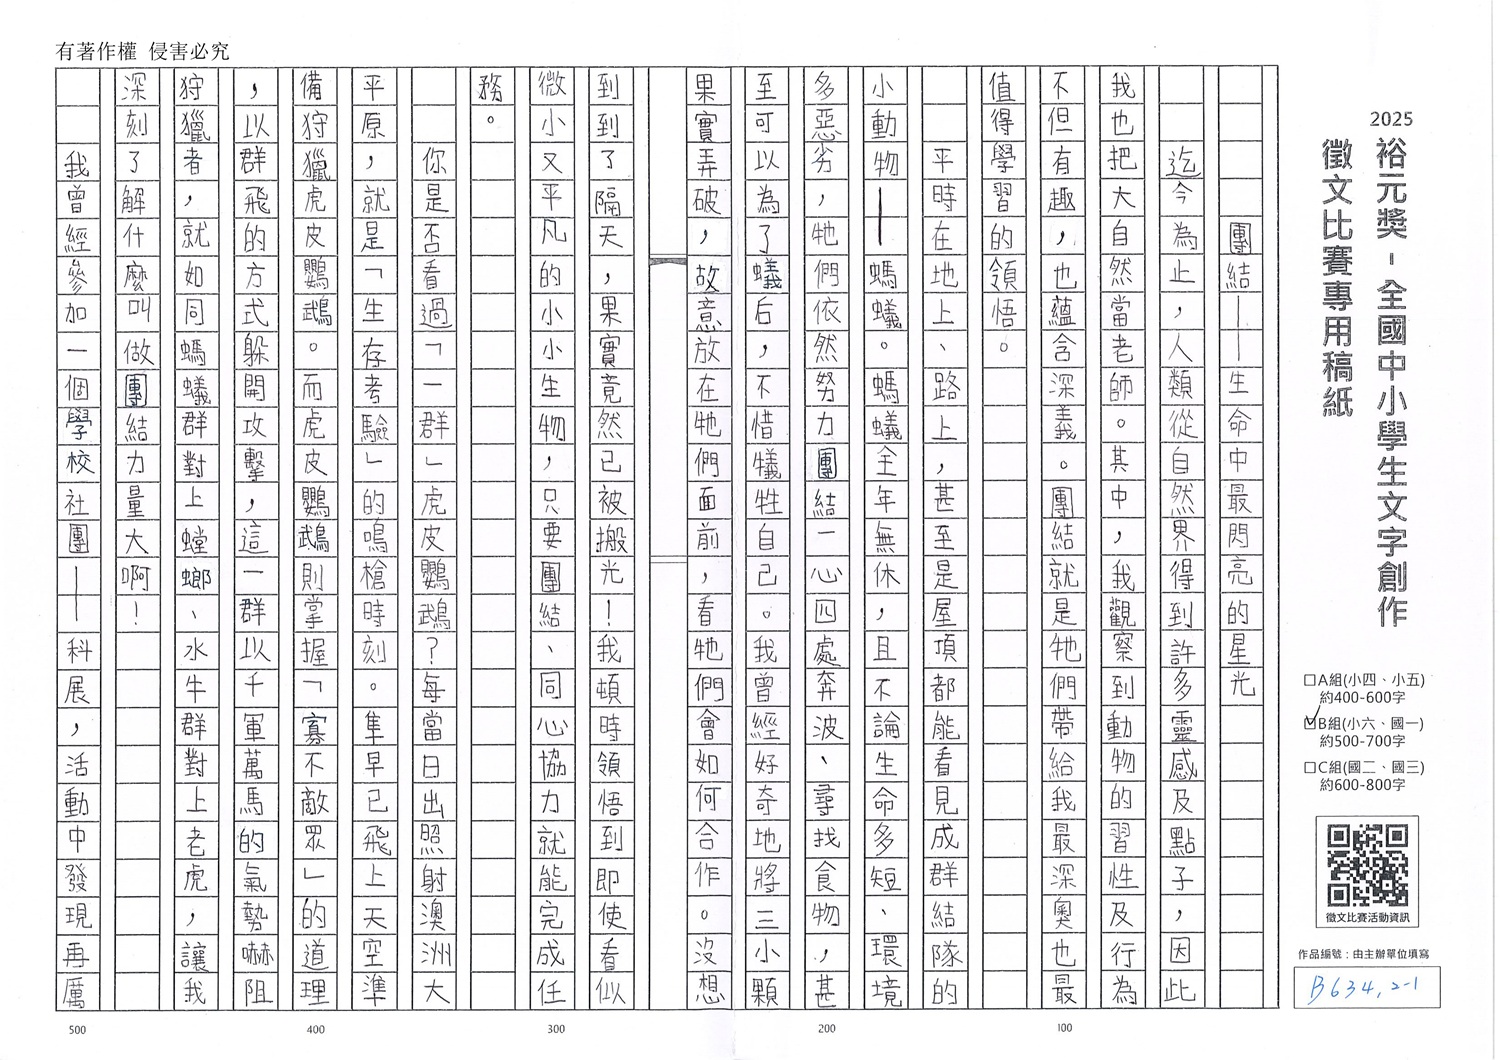 有著作權 侵害必究
2025
裕元獎-全國中小學生文字創作
徵文比賽專用稿紙
□A組(小四、小五)
約400-600字
☑B組(小六、國一)
約500-700字
□C組(國二、國三)
約600-800字
徵文比賽活動資訊
作品編號：由主辦單位填寫
B634,2-1
團結——生命中最閃亮的星光
迄今為止，人類從自然界得到許多靈感及點子，因此
我也把大自然當老師。其中，我觀察到動物的習性及行為
不但有趣，也蘊含深義。團結就是牠們帶給我最深奧也最
值得學習的領悟。
平時在地上、路上，甚至是屋頂都能看見成群結隊的
小動物—螞蟻。螞蟻全年無休，且不論生命多短、環境
多惡劣，牠們依然努力團結一心四處奔波、尋找食物，甚
至可以為了蟻后，不惜犧牲自己。我曾經好奇地將三小顆
果實弄破，故意放在牠們面前，看牠們會如何合作。沒想
到到了隔天，果實竟然已被搬光！我頓時領悟到即使看似
微小又平凡的小生物，只要團結、同心協力就能完成任
務。
你是否看過「一群」虎皮鸚鵡？每當日出照射澳洲大
平原，就是「生存考驗」的鳴槍時刻。隼早已飛上天空準
備狩獵虎皮鸚鵡。而虎皮鸚鵡則掌握「寡不敵眾」的道理
，以群飛的方式躲開攻擊，這一群以千軍萬馬的氣勢嚇阻
狩獵者，就如同螞蟻群對上螳螂、水牛群對上老虎，讓我
深刻了解什麼叫做團結力量大啊！
我曾經參加一個學校社團——科展，活動中發現再厲
100
200
300
400
500